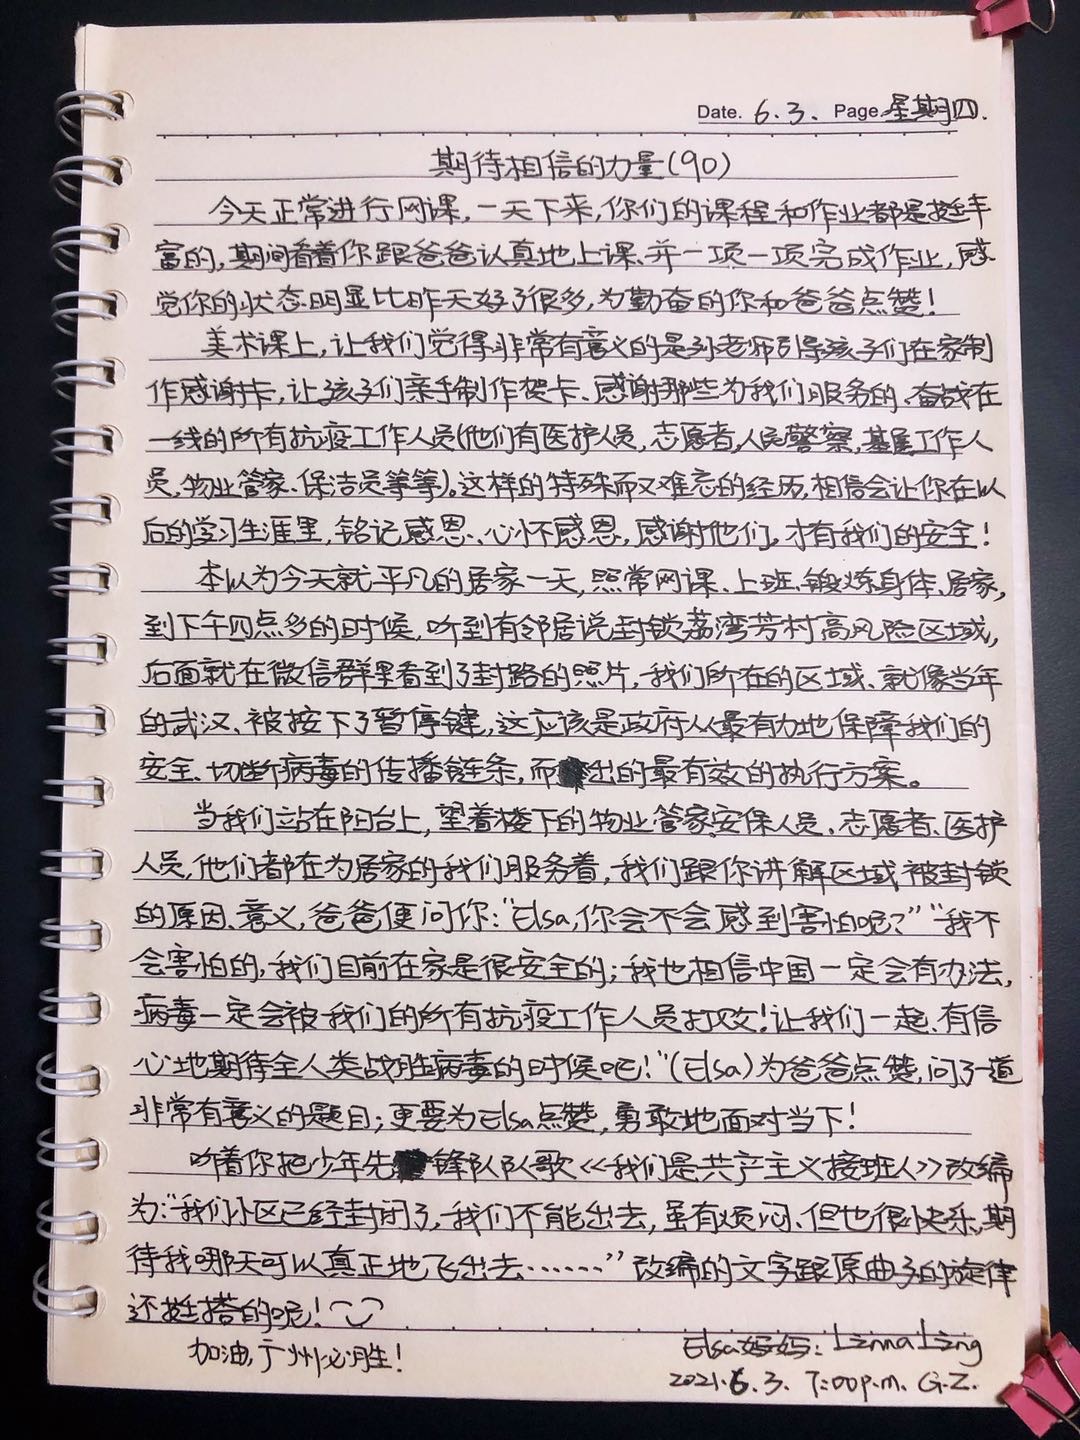 Date. 6.3. Page. 星期四.
期待相信的力量(90)
今天正常进行网课,一天下来,你们的课程和作业都是挺丰
富的,期间看着你跟爸爸认真地上课、并一项一项完成作业,感
觉你的状态明显比昨天好了很多,为勤奋的你和爸爸点赞!
美术课上,让我们觉得非常有意义的是孙老师引导孩子们在家制
作感谢卡,让孩子们亲手制作贺卡、感谢那些为我们服务的、奋战在
一线的所有抗疫工作人员(他们有医护人员,志愿者,人民警察,基层工作人
员,物业管家、保洁员等等)。这样的特殊而又难忘的经历,相信会让你在以
后的学习生涯里,铭记感恩、心怀感恩,感谢他们,才有我们的安全!
本以为今天就平凡的居家一天,照常网课、上班、锻炼身体、居家,
到下午四点多的时候,听到有邻居说封锁荔湾芳村高风险区域,
后面就在微信群里看到了封路的照片,我们所在的区域、就像当年
的武汉、被按下了暂停键,这应该是政府以最有力地保障我们的
安全、切断病毒的传播链条,而出的最有效的执行方案。
当我们站在阳台上,望着楼下的物业管家,安保人员、志愿者、医护
人员,他们都在为居家的我们服务着,我们跟你讲解区域被封锁
的原因、意义,爸爸便问你:“Elsa,你会不会感到害怕呢?”“我不
会害怕的,我们目前在家是很安全的;我也相信中国一定会有办法,
病毒一定会被我们的所有抗疫工作人员打败!让我们一起、有信
心地期待全人类战胜病毒的时候吧!”(Elsa)为爸爸点赞,问了一道
非常有意义的题目;更要为Elsa点赞,勇敢地面对当下!
听着你把少年先锋队队歌《我们是共产主义接班人》改编
为:“我们小区已经封闭了,我们不能出去,虽有烦闷、但也很快乐,期
待我哪天可以真正地飞出去……”改编的文字跟原曲子的旋律
还挺搭的呢!
加油,广州必胜!
Elsa妈妈: Linna Ling
2021.6.3. 7:00p.m. G.Z.